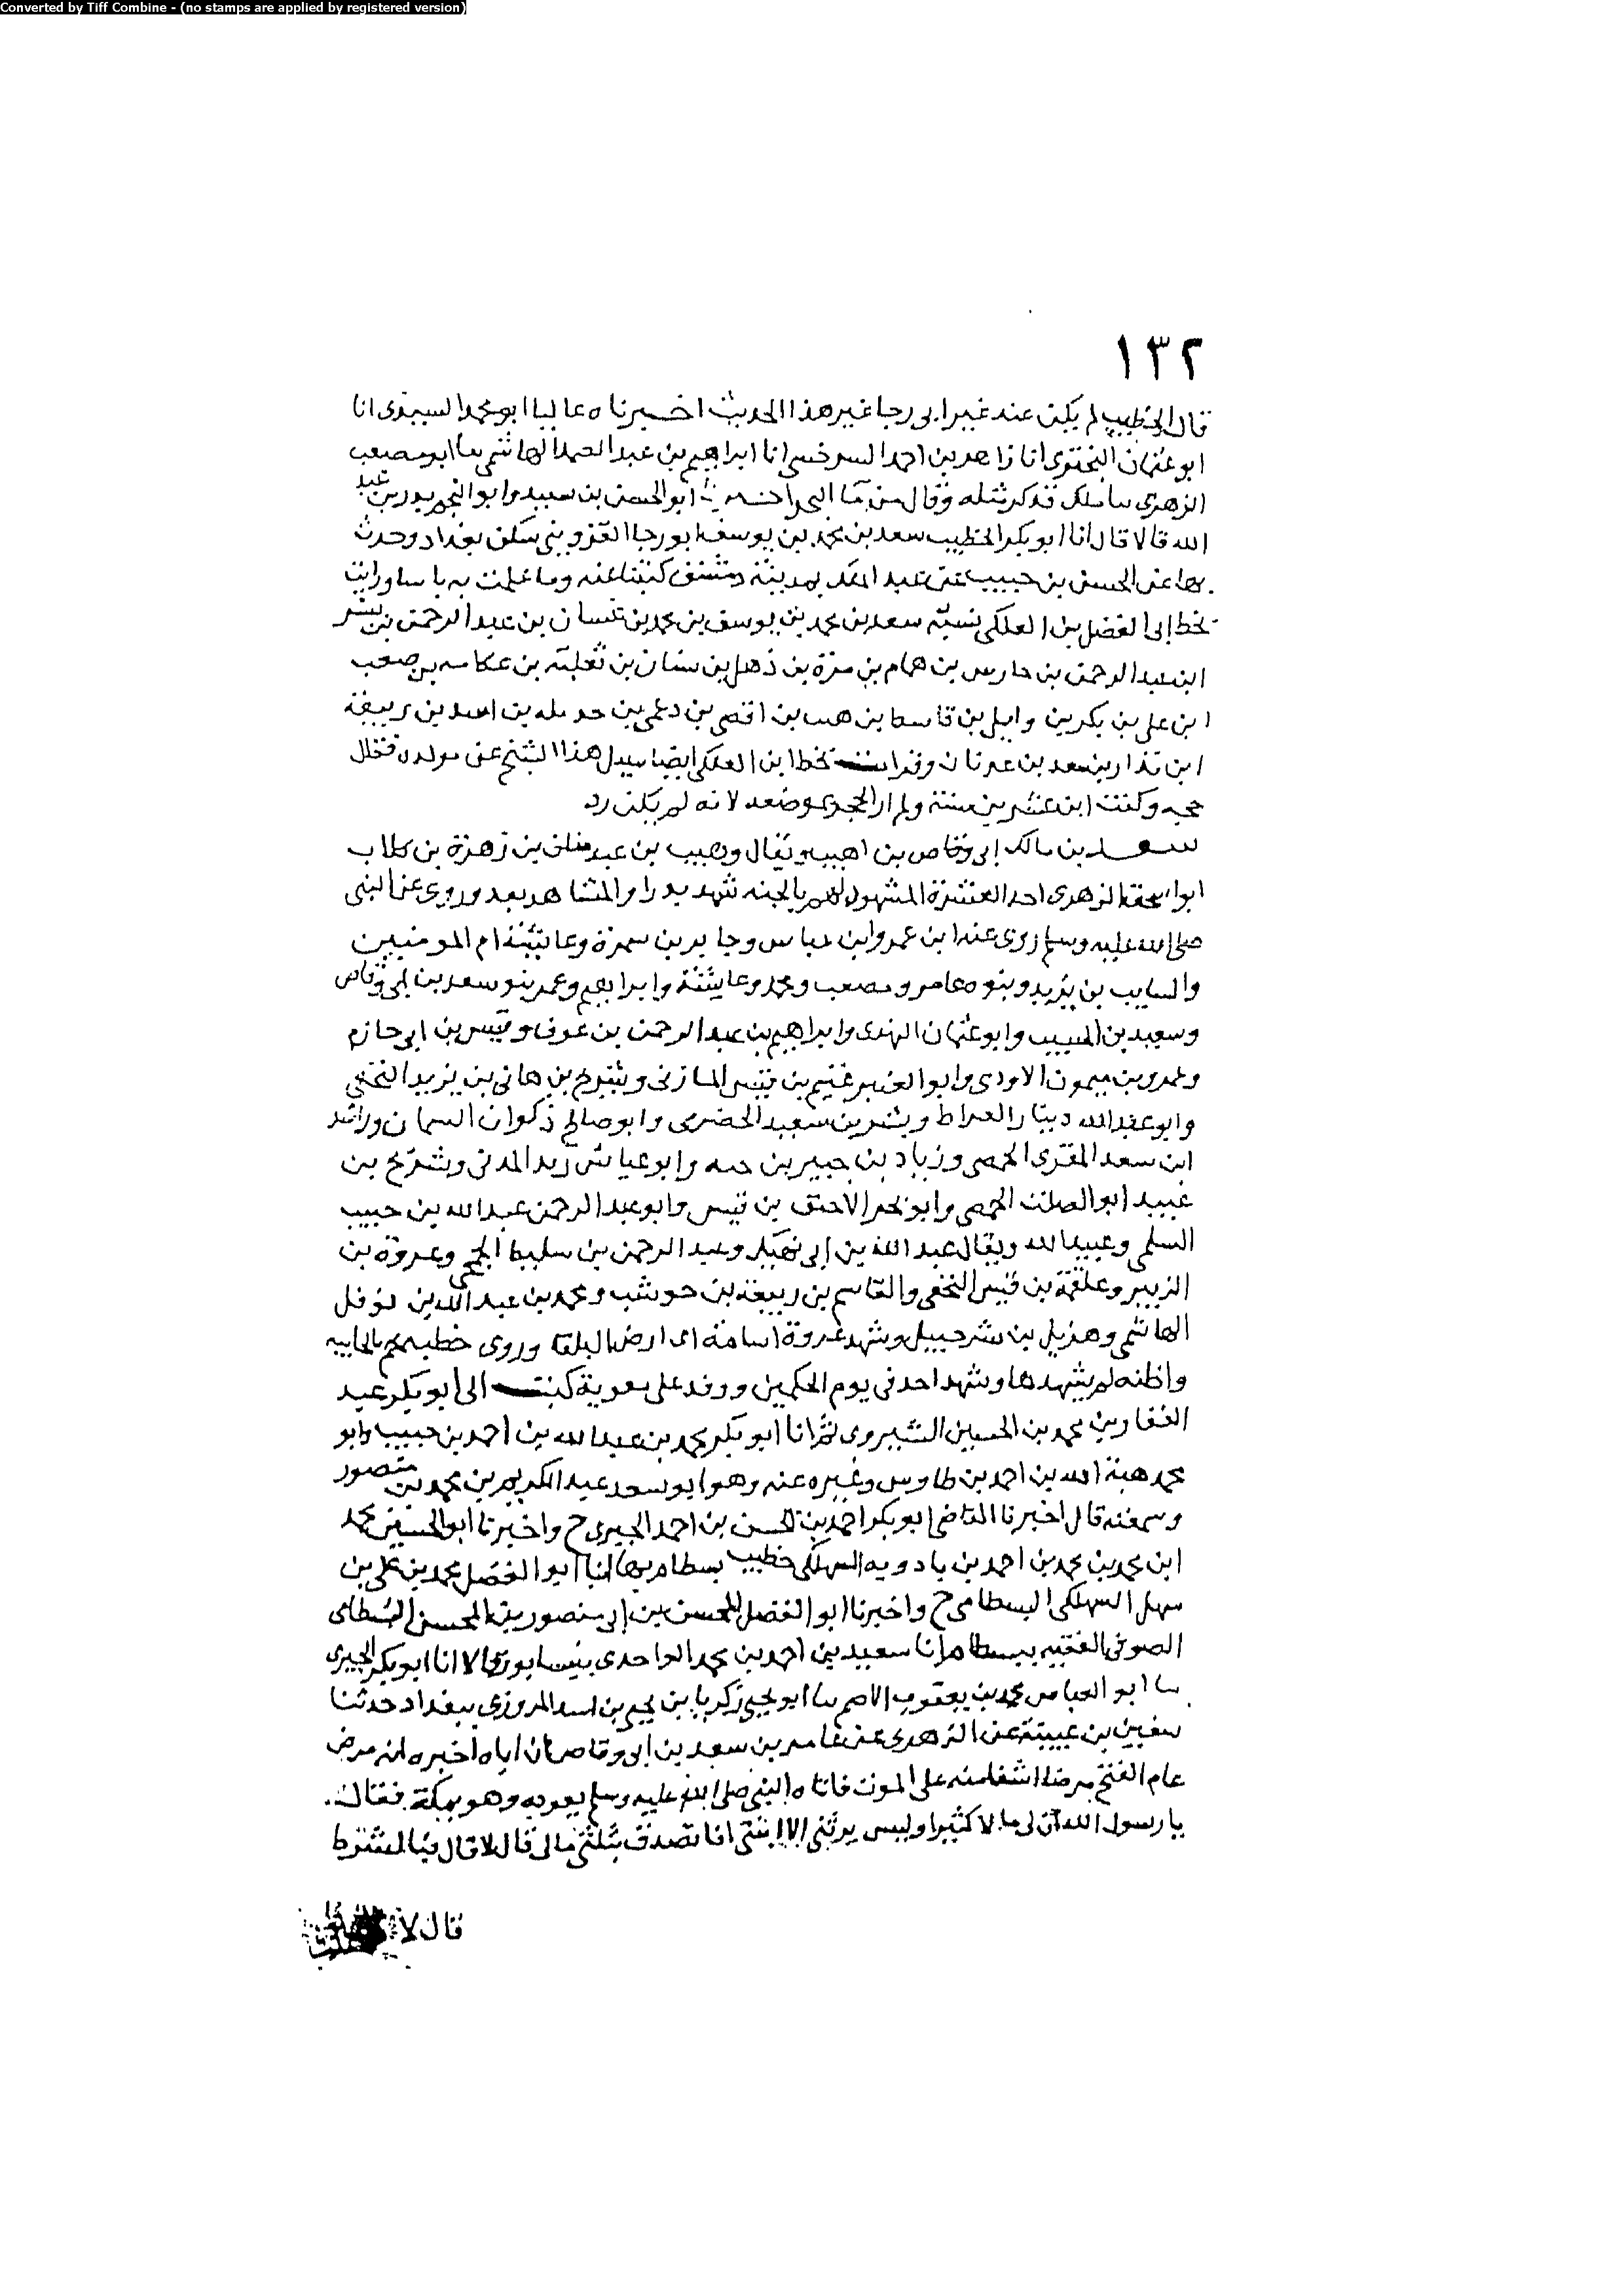 Converted by Tiff Combine - (no stamps are applied by registered version)
١٣٢
قال الخطيب لم يكن عند غير ابى رجا غير هذا الحديث اخبرناه عاليا ابو محمد السيدى انا
ابو عثمان البحترى انا زاهر بن احمد السرخسى انا ابراهيم بن عبد الصمد الهاشمى نا ابو مصعب
الزهرى نا ملك فذكر مثله وقال من ابو الحسن بن سعيد وابو النجم بدر بن عبد
الله قالا قال انا ابو بكر الخطيب سعد بن محمد بن يوسف ابو رجا القزوينى سكن بغداد وحدث
بها عن الحسن بن حبيب عن عبد الملك بمدينة دمشق كتبنا عنه وما علمت به باسا ورايت
بخط ابى الفضل بن العلكى نسبة سعد بن محمد بن يوسف بن محمد بن غسان بن عبد الرحمن بن بشر
ابن عبد الرحمن بن حارس بن همام بن مرة بن ذهل بن سنان بن ثعلبة بن عكاسه بن صعب
ابن على بن بكر بن وايل بن قاسط بن هنب بن اقصى بن دعمى بن حديله بن اسد بن ربيعة
ابن نذار بن سعد بن عدنان وقرات بخط ابن العلكى ايضا سيل هذا الشيخ عن مولده فقال
حجه وكنت ابن عشرين سنة ولم ار الحجر بموضعه لانه لم يكن رد
سعد بن مالك ابى وقاص بن اهيب ويقال وهيب بن عبد مناف بن زهرة بن كلاب
ابو اسحق الزهرى احد العشرة المشهود لهم بالجنه شهد بدرا والمشاهد بعد وروى عن النبى
صلى الله عليه وسلم روى عنه ابن عمر وابن عباس وجابر بن سمرة وعايشة ام المومنين
والسايب بن يزيد وبنوه عامر ومصعب ومحمد وعايشة وابراهيم وعمر بنو سعد بن ابى وقاص
وسعيد بن المسيب وابو عثمان الهندى وابراهيم بن عبد الرحمن بن عوف وقيس بن ابى حازم
وعمرو بن ميمون الاودى وابو العنبر غنيم بن قيس المازنى وشريح بن هانى بن يزيد النخعى
وابو عبد الله دينار القراط وبشر بن سعيد الحضرمى وابو صالح ذكوان السمان وراشد
ابن سعد المقرى الحمصى وزياد بن جبير بن حيه وابو عياش زيد المدنى وشريح بن
عبيد ابو الصلت الحمصى وابو بحر الاحنف بن قيس وابو عبد الرحمن عبد الله بن حبيب
السلمى وعبيد الله ويقال عبد الله بن ابى نهيك وعبد الرحمن بن سليط الجمحى وعروة بن
الزبير وعلقمة بن قيس النخعى والقاسم بن ربيعة بن حوشب ومحمد بن عبد الله بن نوفل
الهاشمى وهزيل بن شرحبيل وشهد غزوة اسامة الى ارض البلقا وروى خطبه عمر بالجابيه
واظنه لم يشهدها وشهد احد فى يوم الحكمين ووفد على معوية كتب الى ابو بكر عبد
الغفار بن محمد بن الحسين الشيروى ثم انا ابو بكر محمد بن عبد الله بن احمد بن حبيب وابو
محمد هبة الله بن احمد بن طاوس وغيره عنه وهو ابو سعد عبد الكريم بن محمد بن منصور
وسمعته قال اخبرنا القاضى ابو بكر احمد بن الحسن بن احمد الحيرى ح واخبرنا ابو الحسين محمد
ابن محمد بن محمد بن احمد بن بادويه السهلكى خطيب بسطام بها انا ابو الفضل محمد بن على بن
سهل السهلكى البسطامى ح واخبرنا ابو الفضل المحسن بن ابى منصور بن المحسن البسطامى
الصوفى الفقيه ببسطام انا سعيد بن احمد بن محمد الواحدى بنيسابور قالا انا ابو بكر الحيرى
نا ابو العباس محمد بن يعقوب الاصم نا ابو يحيى زكريا بن يحيى بن اسد المروزى ببغداد حدثنا
سفين بن عيينة عن الزهرى عن عامر بن سعد بن ابى وقاص ان اباه اخبره انه مرض
عام الفتح مرضا اشفا منه على الموت فاتاه النبى صلى الله عليه وسلم يعوده وهو بمكة فقال
يا رسول الله ان لى مالا كثيرا وليس يرثنى الا ابنتى افاتصدق بثلثى مالى قال لا قال فبالشرط
قال لا